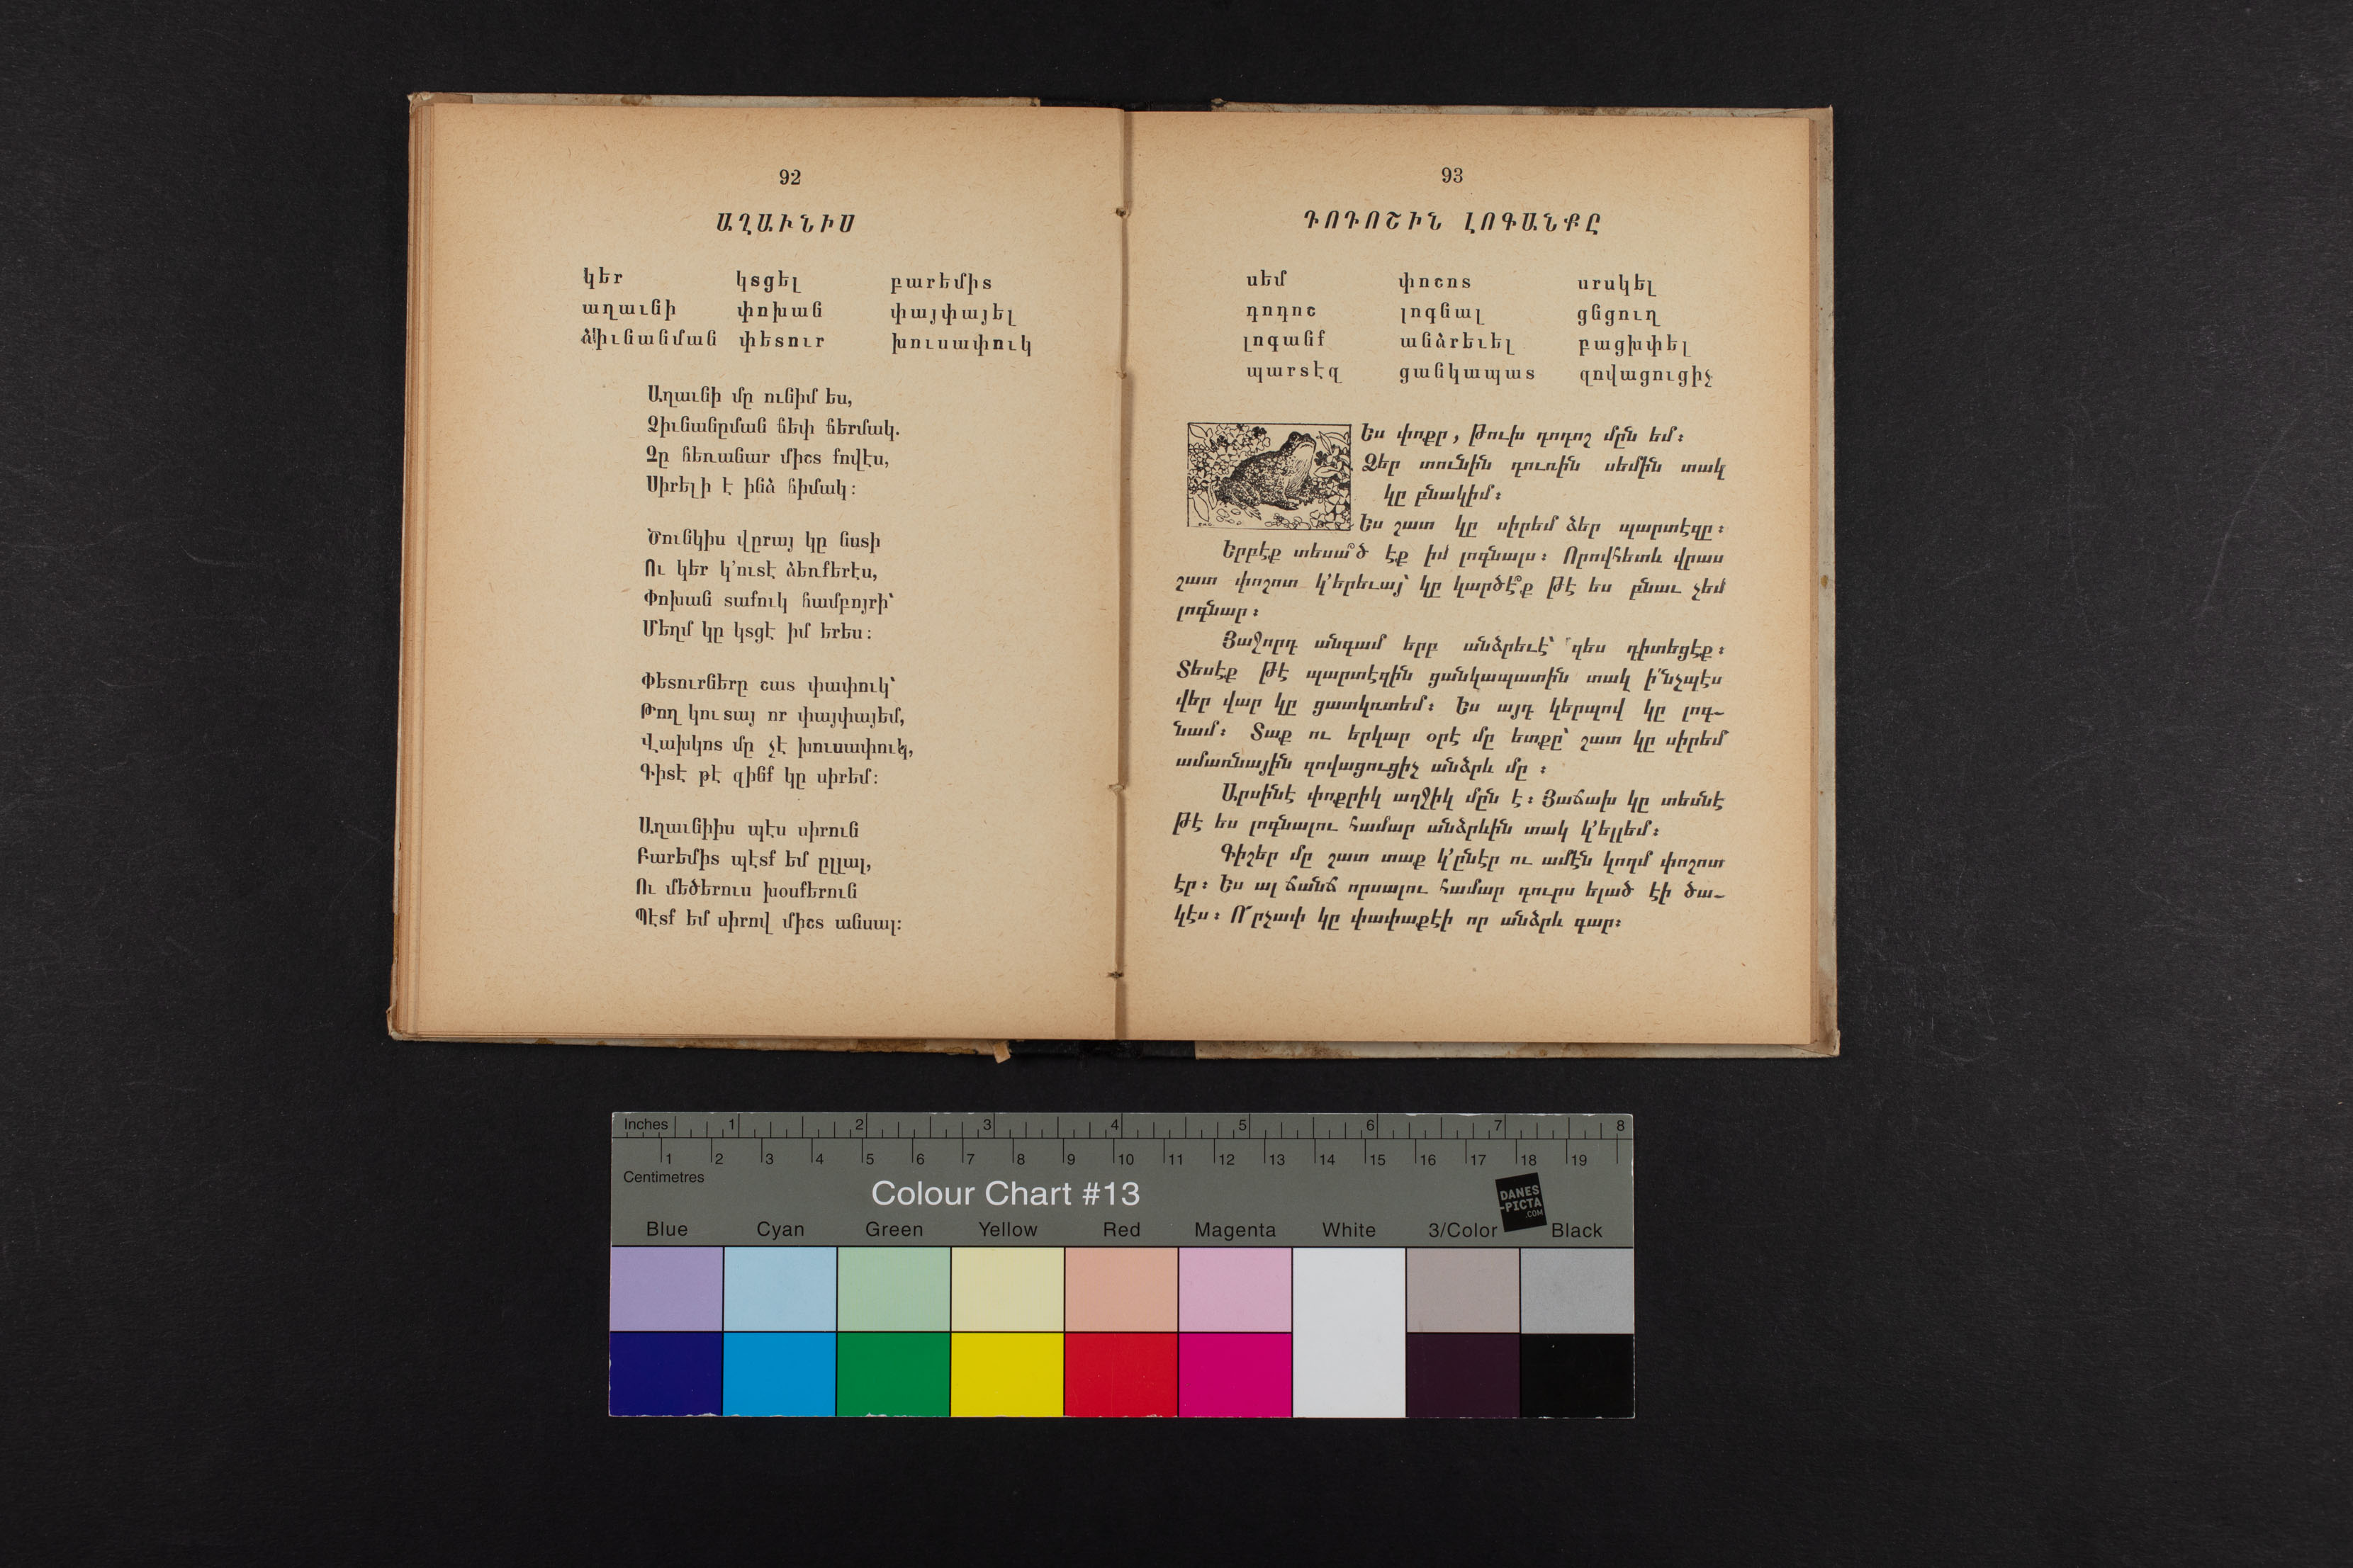 92
ԱՂԱՒՆԻՍ
կեր կտցել բարեմիտ
աղաւնի փոխան փայփայել
ձիւնանման փետուր խուսափուկ
Աղաւնի մը ունիմ ես,
Ձիւնանըման ճեփ ճերմակ.
Չը հեռանար միշտ քովէս,
Սիրելի է ինձ հիմակ։
Ծունկիս վըրայ կը նստի
Ու կեր կ՚ուտէ ձեռքերէս,
Փոխան տաքուկ համբոյրի՝
Մեղմ կը կտցէ իմ երես։
Փետուրները շատ փափուկ՝
Թող կուտայ որ փայփայեմ,
Վախկոտ մը չէ խուսափուկ,
Գիտէ թէ զինք կը սիրեմ։
Աղաւնիիս պէս սիրուն
Բարեմիտ պէտք եմ ըլլալ,
Ու մեծերուս խօսքերուն
Պէտք եմ սիրով միշտ անսալ։
93
ԴՈԴՈՇԻՆ ԼՈԳԱՆՔԸ
սեմ փոշոտ սրսկել
դոդոշ լոգնալ ցնցուղ
լոգանք անձրեւել բացխփել
պարտէզ ցանկապատ զովացուցիչ
Ես փոքր, թուխ դոդոշ մըն եմ։
Ձեր տունին դուռին սեմին տակ
կը բնակիմ։
Ես շատ կը սիրեմ ձեր պարտէզը։
Երբէք տեսա՞ծ էք իմ լոգնալս։ Որովհետև վրաս
շատ փոշոտ կ՚երեւայ՝ կը կարծէ՞ք թէ ես բնաւ չեմ
լոգնար։
Յաջորդ անգամ երբ անձրեւէ՝ զես դիտեցէք։
Տեսէք թէ պարտէզին ցանկապատին տակ ի՜նչպէս
վեր վար կը ցատկռտեմ։ Ես այդ կերպով կը լոգ-
նամ։ Տաք ու երկար օրէ մը ետքը՝ շատ կը սիրեմ
ամառնային զովացուցիչ անձրև մը ։
Արսինէ փոքրիկ աղջիկ մըն է։ Յաճախ կը տեսնէ
թէ ես լոգնալու համար անձրևին տակ կ՚ելլեմ։
Գիշեր մը շատ տաք կ՚ընէր ու ամէն կողմ փոշոտ
էր։ Ես ալ ճանճ որսալու համար դուրս ելած էի ծա-
կէս։ Ո՜րչափ կը փափաքէի որ անձրև գար։
Inches 1 2 3 4 5 6 7 8
1 2 3 4 5 6 7 8 9 10 11 12 13 14 15 16 17 18 19
Centimetres
Colour Chart #13
DANES
-PICTA
.COM
Blue Cyan Green Yellow Red Magenta White 3/Color Black